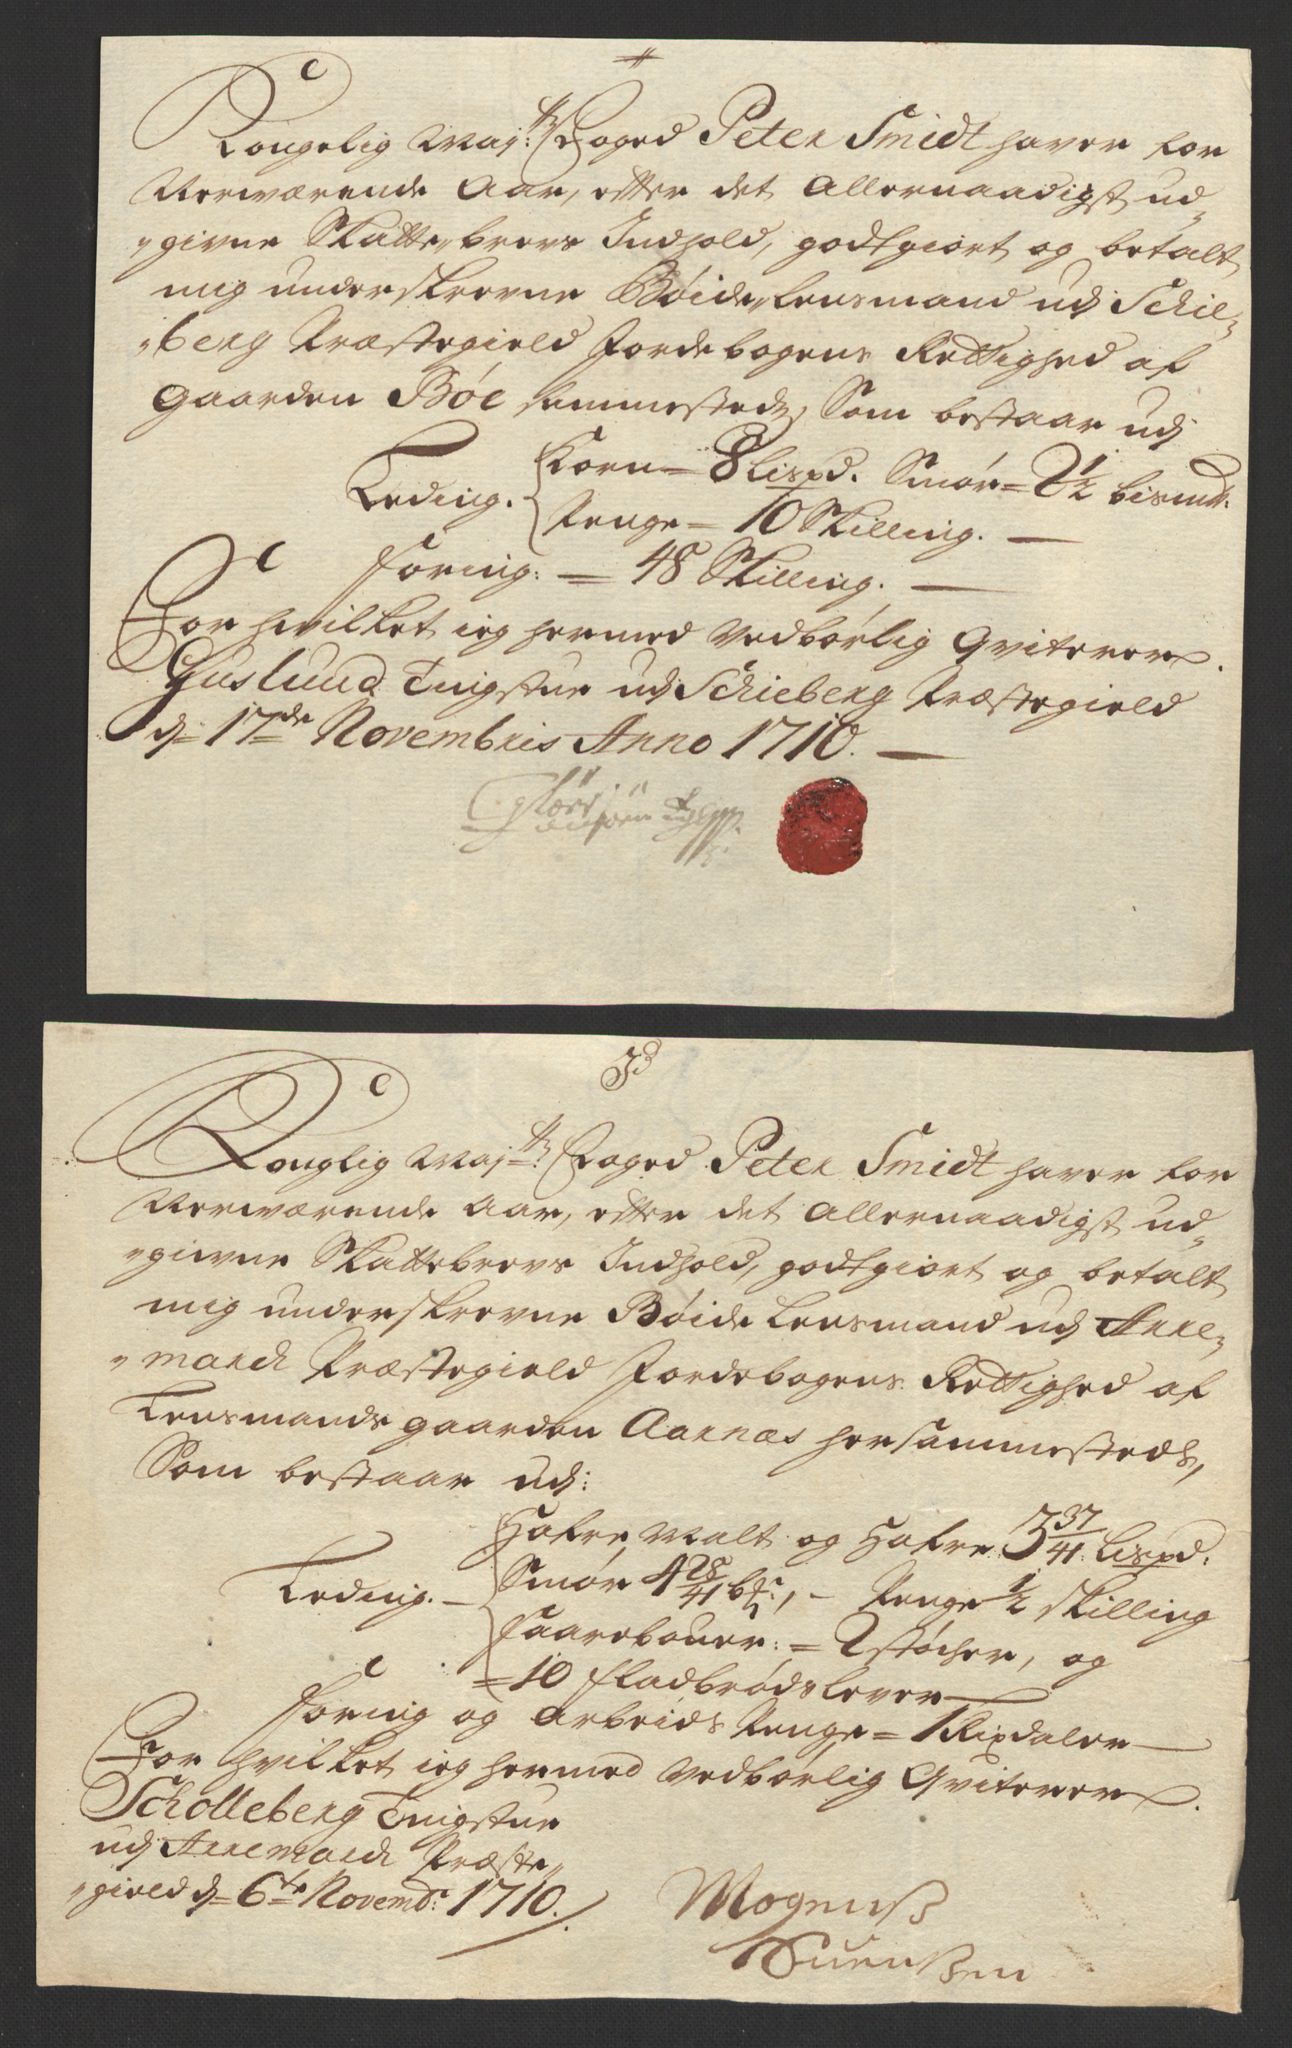 Kongelig Maj:ts Foged Peter Smidt haver for
Nerværende Aar, efter det Allernaadigst ud„
„givne Skatte„brevs Indhold, godtgiort og betalt
mig underskrevne Bøide„lensmand udj Schie„
„berg Præstegield Jordebogens Rettighed af
gaarden Böe sammesteds, Som bestaar udj
Korn = 8 Lispd. Smör = 2 1/2 bismd.
Leding.
Penge = 10 Skilling. —
Foring: = 48 Skilling. —
For hvilket ieg hermed vedbørlig Qviterer.
Guslund Tingstue udj Schieberg Præstegield
d: 17de Novembris Anno 1710. —
3
Konglig Maj:ts Foged Peter Smidt haver for
Nerværende Aar, efter det Allernaadigst ud„
„givne Skattebrevs Indhold, godtgiort og betalt
mig underskrevne Bøide Lensmand udj Arre„
„march Præstegield Jordebogens Rettighed af
Lensmands gaarden Aarnæs hersammesteds,
Som bestaar udj:
Hafre Malt og Hafre 3 37/41 Lispd.
Leding. —
Smör 4 28/41 bß:, – Penge 1/2 skilling
faarebouer: = 2 støcher, og
= 10 fladbrøds lever
Foring og Arbeids Penge = 1 Rixdaler —
For hvilket ieg hermed vedbørlig Qviterer.
Scholleberg Tingstue
udj Arremarch Præste„
„gield d: 6te Novembr: 1710.
Mogenß
Suenßen